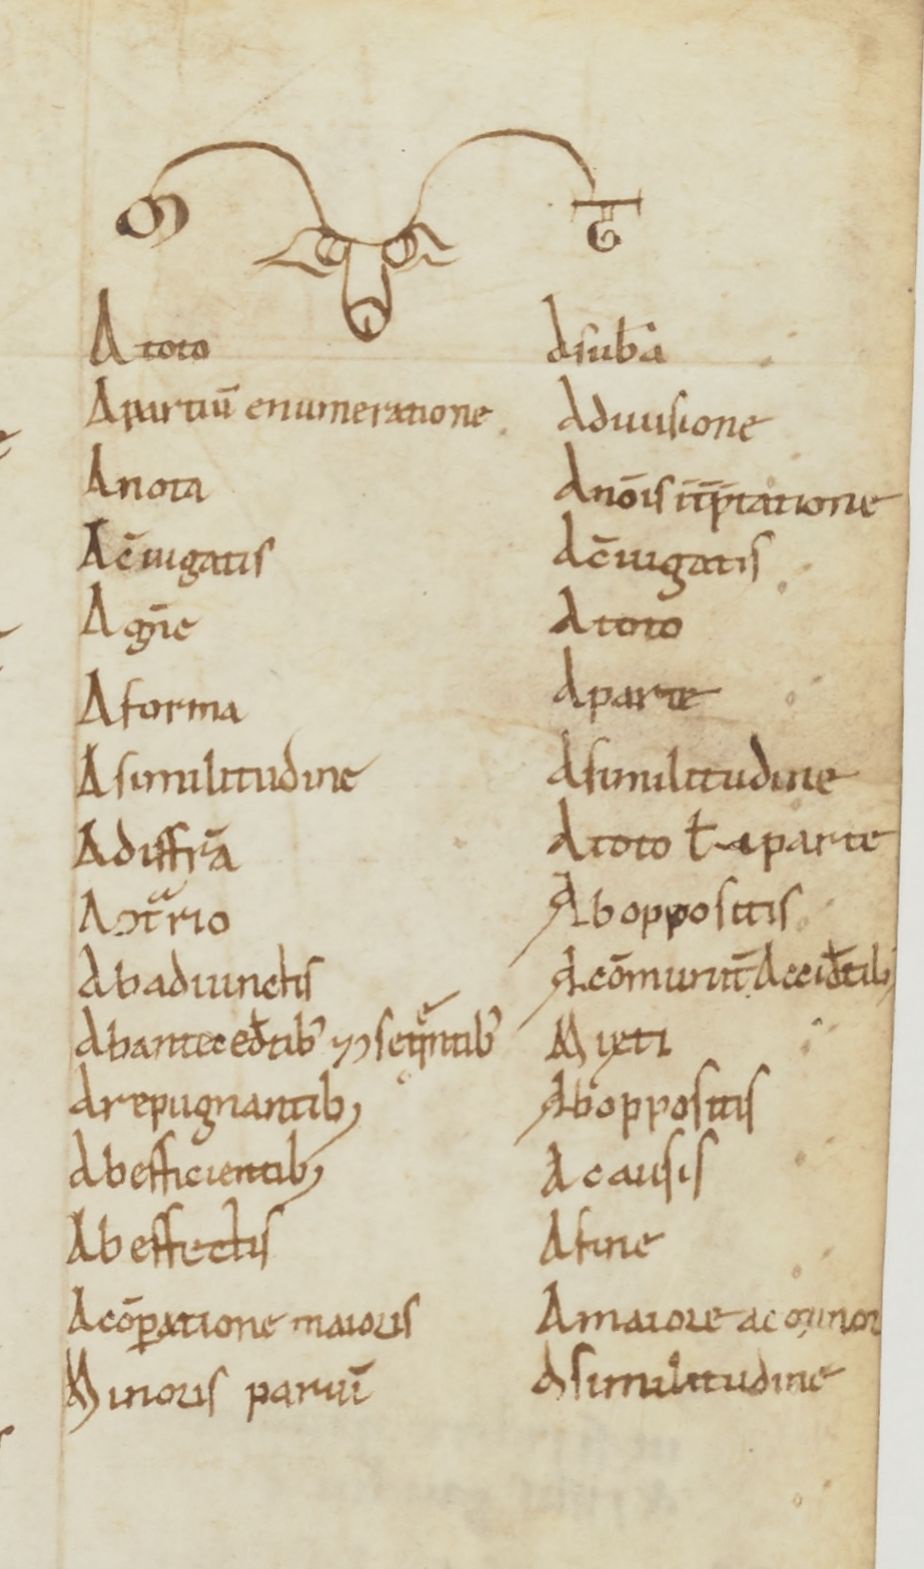 A toto
A partiū enumeratione
A nota
A c̄iugatis
A gñe
A forma
A similitudine
A diffr̄a
A ɔtͣrio
Ab adiunctis
Ab antecedētib' ɔseq̄ntib'
A repugnantib;
Ab efficientib;
Ab effectis
A cōꝑatione maioris
Minoris pariū
A sub̄a
A diuisione
A nōis īt̄p̄tatione
A c̄iugatis
A toto
A parte
A similitudine
A toto ł a parte
Ab oppositis
A cōmuniū accidētib;
Mixti
Ab oppositis
A causis
A fine
A maiore ac minor
A similitudine